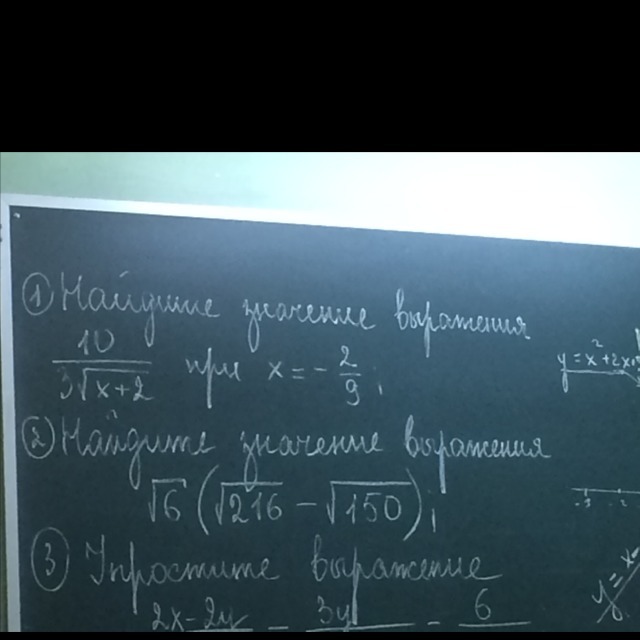 ① Найдите значение выражения
10/(3√(x+2)) при x = -2/9;
② Найдите значение выражения
√6 (√216 - √150);
③ Упростите выражение
2x-2y - 3y - 6
y = x² + 2x